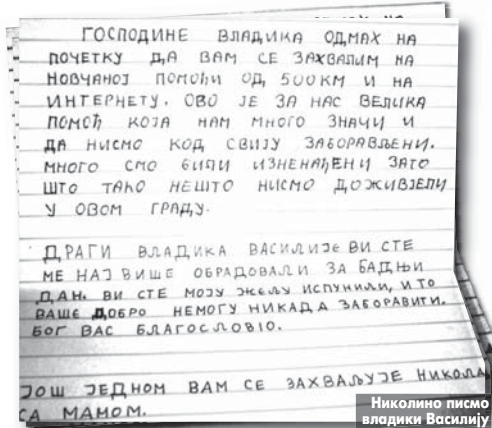 ГОСПОДИНЕ ВЛАДИКА ОДМАХ НА
ПОЧЕТКУ ДА ВАМ СЕ ЗАХВАЛИМ НА
НОВЧАНОЈ ПОМОЋИ ОД 500КМ И НА
ИНТЕРНЕТУ. ОВО ЈЕ ЗА НАС ВЕЛИКА
ПОМОЋ КОЈА НАМ МНОГО ЗНАЧИ И
ДА НИСМО КОД СВИЈУ ЗАБОРАВЉЕНИ.
МНОГО СМО БИЛИ ИЗНЕНАЂЕНИ ЗАТО
ШТО ТАКО НЕШТО НИСМО ДОЖИВЈЕЛИ
У ОВОМ ГРАДУ.
ДРАГИ ВЛАДИКА ВАСИЛИЈЕ ВИ СТЕ
МЕ НАЈВИШЕ ОБРАДОВАЛИ ЗА БАДЊИ
ДАН. ВИ СТЕ МОЈУ ЖЕЉУ ИСПУНИЛИ, И ТО
ВАШЕ ДОБРО НЕМОГУ НИКАДА ЗАБОРАВИТИ.
БОГ ВАС БЛАГОСЛОВІО.
ЈОШ ЈЕДНОМ ВАМ СЕ ЗАХВАЉУЈЕ НИКОЛА
СА МАМОМ.
Николино писмо
владики Василију